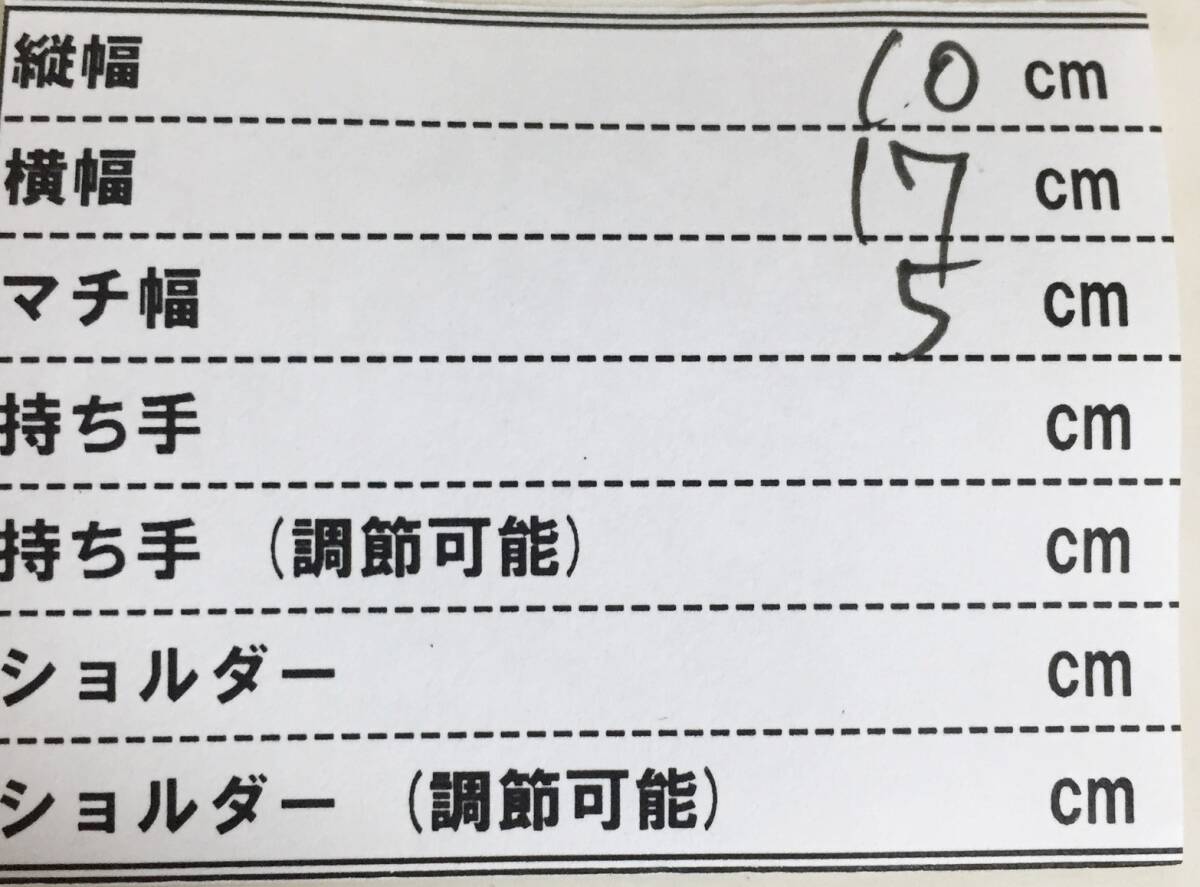 縦幅 10 cm
横幅 17 cm
マチ幅 5 cm
持ち手 cm
持ち手 (調節可能) cm
ショルダー cm
ショルダー (調節可能) cm